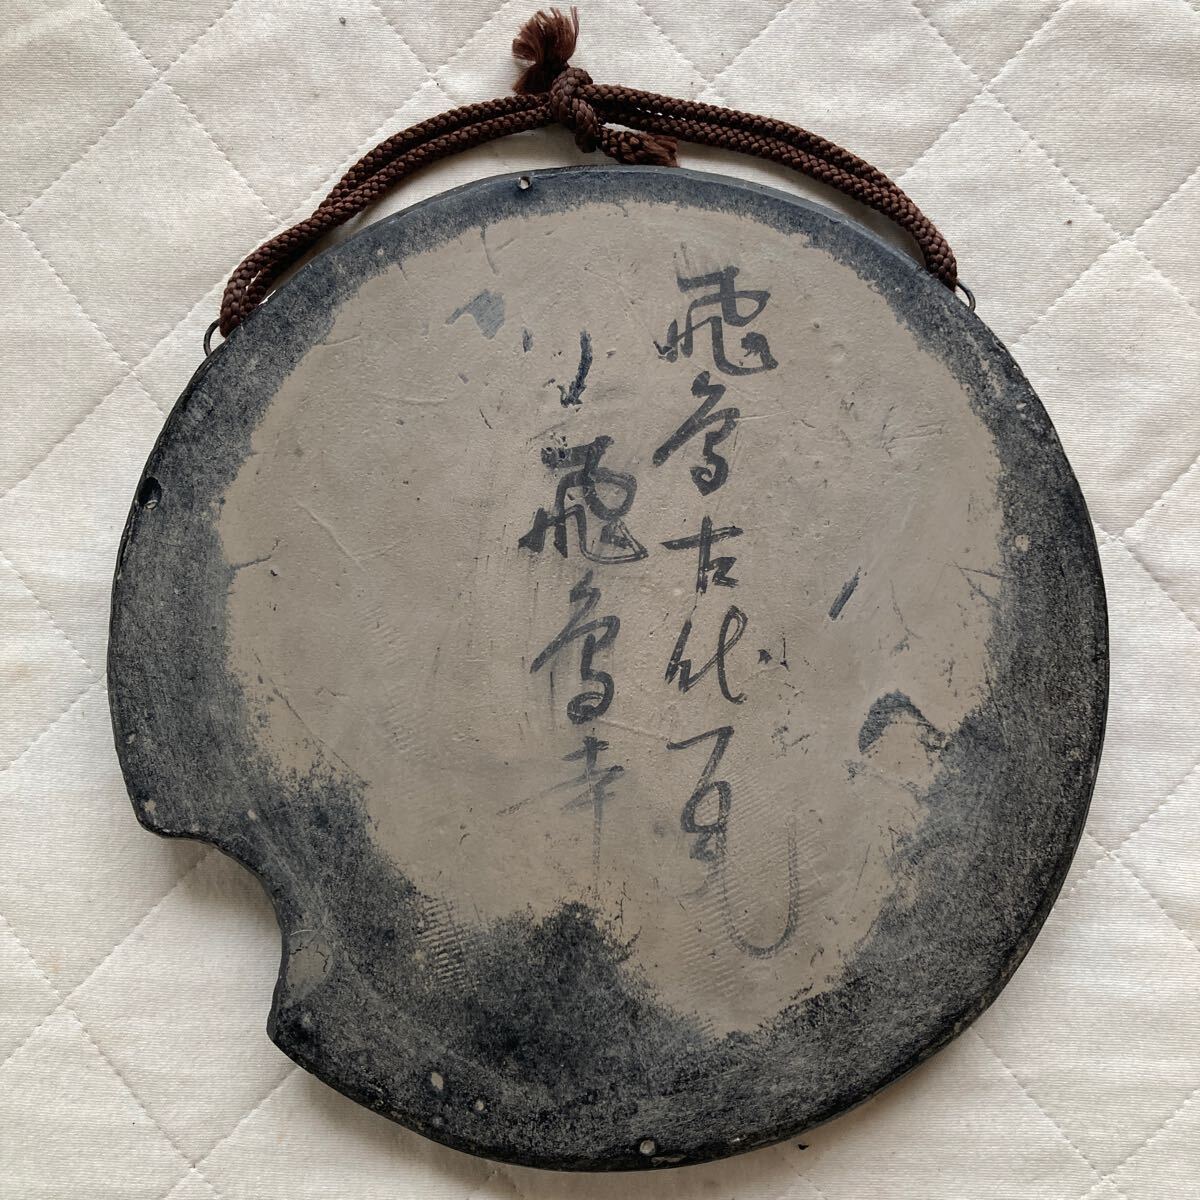 飛鳥古代瓦
飛鳥寺